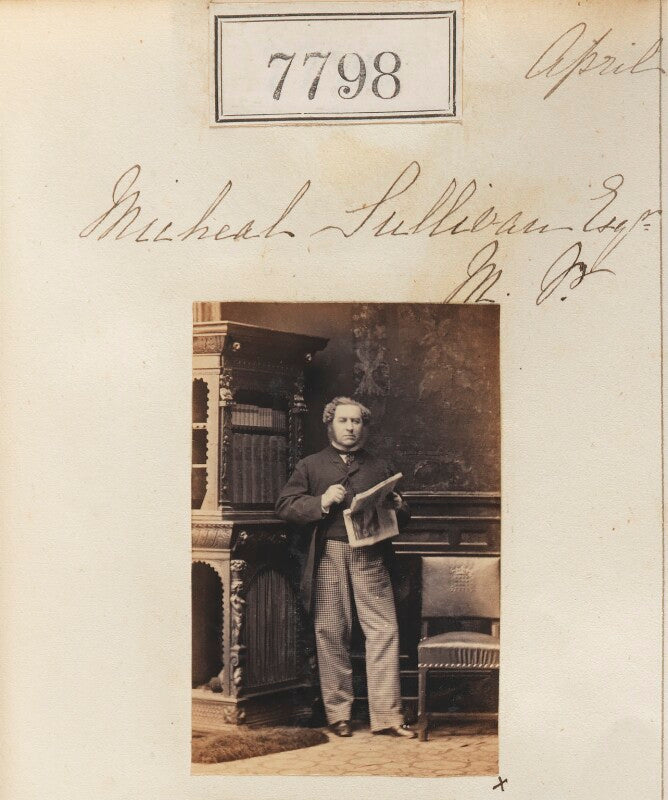 7798
April
Micheal Sullivan Esqr.
M. P.
x